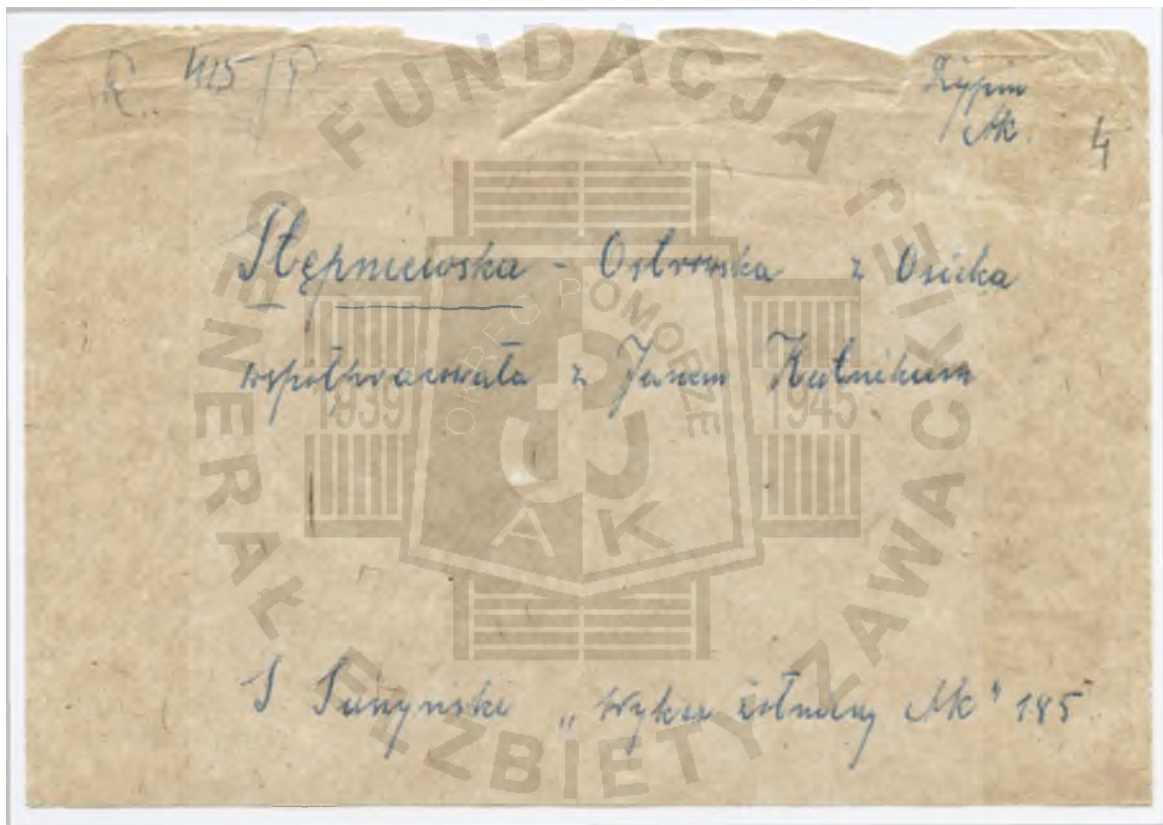 415/P
Rypin
AK. 4
Stępniewska - Ostrowska z Osieka
współpracowała z Janem Kutnikiem
"wykaz żołnierzy AK" 185
FUNDACJA GENERAŁ ELŻBIETY ZAWACKIEJ
OKRĘG POMORZE
1939 1945
AK